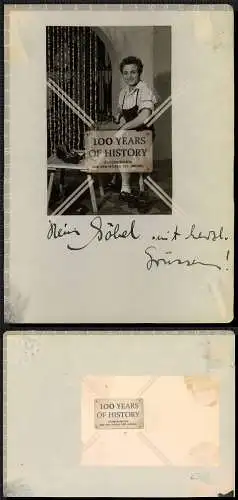 100 YEARS
OF HISTORY
Heinz Göbel mit herzl.
Grüssen!
100 YEARS
OF HISTORY